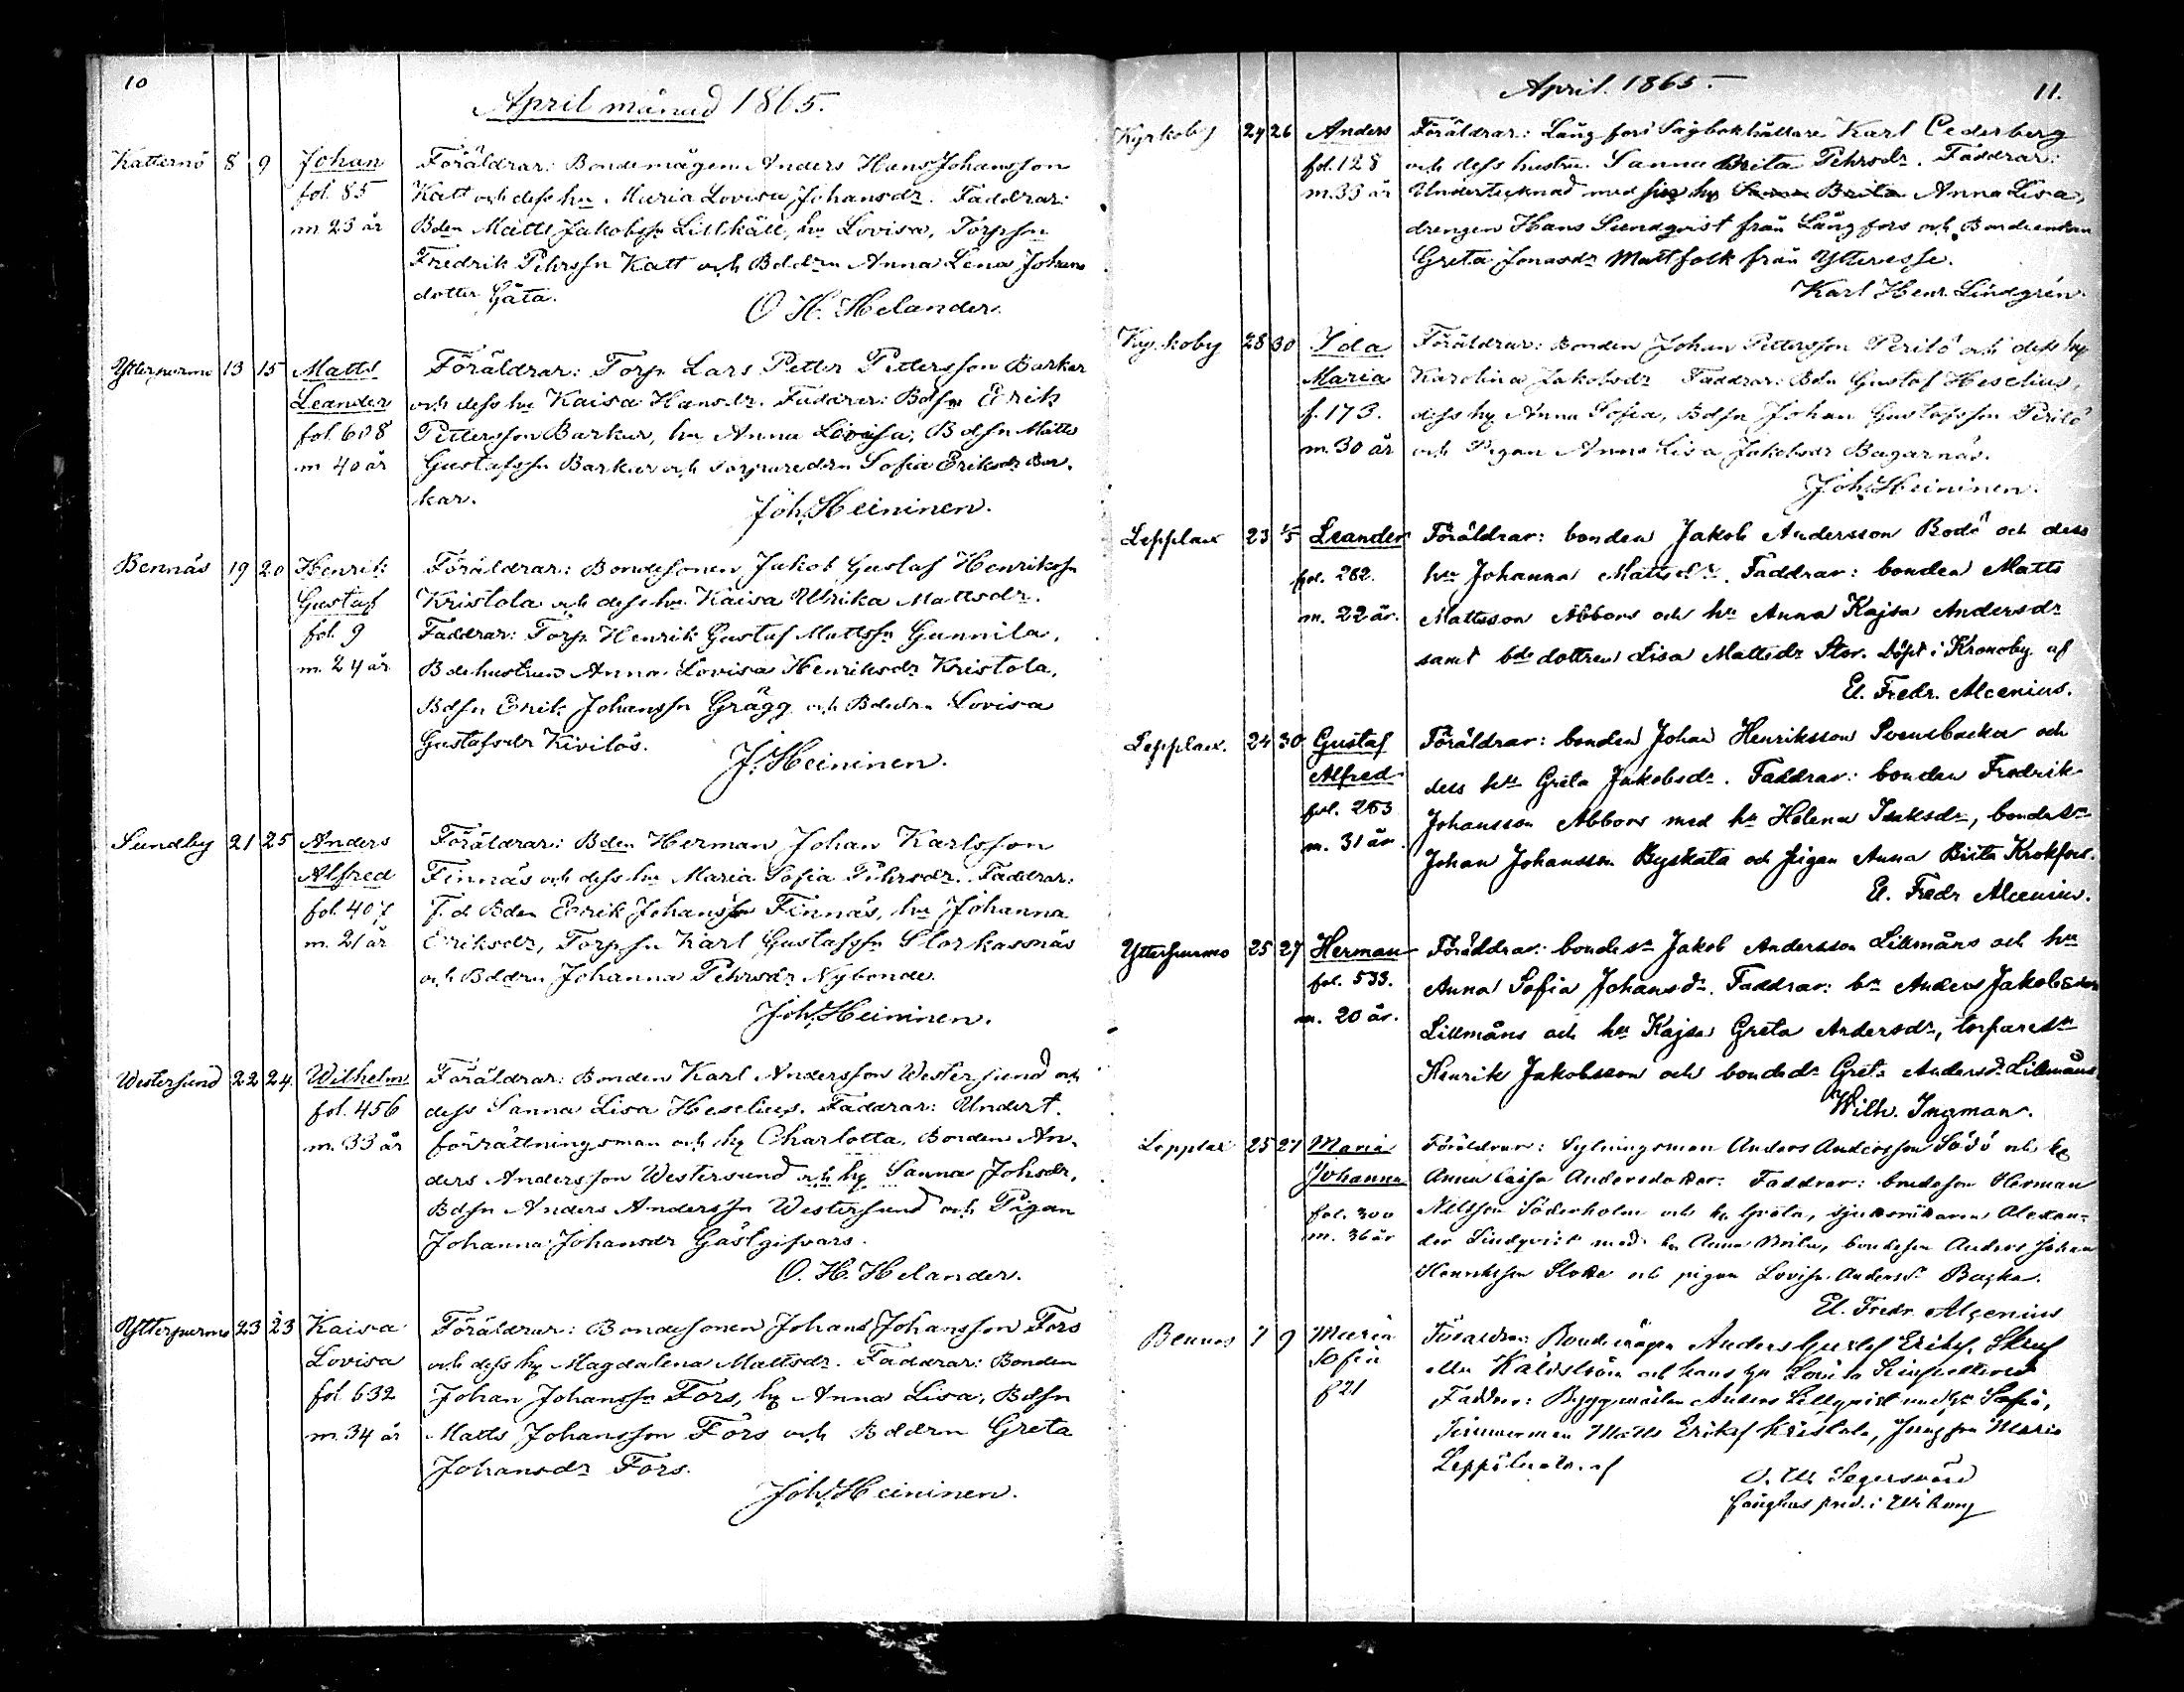 10
April månad 1865.
Katternö 8 9 Johan Föräldrar: Bondemågen Anders Hans Johansson
fol. 85 Katt och dess hu Maria Lovisa Johansdr. Faddrar:
m 23 år Bden Matts Jakobssn Lillkåll, hu Lovisa, Torpsn
Fredrik Pehrssn Katt och Bddrn Anna Lena Johans
dotter Gåta.
O H. Helander.
Ytterpurmo 13 15 Matts Föräldrar: Torp. Lars Petter Pettersson Barkar
Leander och dess hu Kaisa Hansdr. Faddrar: Bdsn Erik
fol. 608 Pettersson Barkar, hu Anna Lovisa, Bdsn Matts
m 40 år Gustafssn Barkar och torparedrn Sofia Eriksdr Bar-
kar.
Joh. Heininen.
Bennäs 19 20 Henrik Föräldrar: Bondesonen Jakob Gustaf Henrikssn
Gustaf Kristola och dess hu Kaisa Ulrika Mattsdr.
fol. 9 Faddrar: Torp. Henrik Gustaf Mattssn Gunnila,
m. 24 år Bdehustrun Anna Lovisa Henriksdr Kristola,
Bdsn Erik Johanssn Grägg och Bdedrn Lovisa
Gustafsdr Kivilös.
J. Heininen.
Sundby 21 25 Anders Föräldrar: Bden Herman Johan Karlsson
Alfred Finnäs och dess hu Maria Sofia Pehrsdr. Faddrar:
fol. 407 F.d. Bden Erik Johansson Finnäs, hu Johanna
m. 21 år Eriksdr, Torpsn Karl Gustafssn Storkassnäs
och Bddrn Johanna Pehrsdr Nybonde.
Joh. Heininen.
Westersund 22 24. Wilhelm Föräldrar: Bonden Karl Andersson Westersund och
fol. 456 dess Sanna Lisa Heselius. Faddrar: Undert.
m. 33 år förrättningsman och hu Charlotta, Bonden An-
ders Andersson Westersund och hu Sanna Johsdr,
Bdsn Anders Anderssn Westersund och Pigan
Johanna Johansdr Gästgifvars.
O. H. Helander.
Ytterpurmo 23 23 Kaisa Föräldrar: Bondesonen Johans Johansson Fors
Lovisa och dess hu Magdalena Mattsdr. Faddrar: Bonden
fol 632 Johan Johanssn Fors, hu Anna Lisa, Bdsn
m. 34 år Matts Johansson Fors och Bddrn Greta
Johansdr Fors.
Joh. Heininen.
April. 1865.
11.
Kyrkoby 24 26 Anders Föräldrar: Långfors Sågbokhållare Karl Cederberg
fol. 128 och dess hustru Sanna Brita Pehrsdr. Faddrar:
m. 35 år Undertecknad med sin hu Sanna Brita Anna Lisa,
drengen Hans Sundqvist från Långfors och Bondeenkan
Greta Jonasdr Mattfolk från Ytteresse.
Karl Henr. Lindgrén.
Kyrkoby 28 30 Ida Föräldrar: Bonden Johan Pettersson Perilö och dess hu
Maria Karolina Jakobsdr Faddrar: Bdn Gustaf Heselius,
f. 173. dess hu Anna Sofia, Bdsn Johan Gustafsson Perilö
m. 30 år och Pigan Anna Lisa Jakobsdr Bagarnäs.
Joh. Heininen.
Lepplax 23 1/5 Leander Föräldrar: bonden Jakob Andersson Bodö och dess
fol. 262. hu Johanna Mattsdr. Faddrar: bonden Matts
m. 22 år. Mattsson Abbors och hu Anna Kajsa Andersdr
samt bde dottren Lisa Mattsdr Stor. Döpt i Kronoby af
El. Fredr. Alcenius.
Lepplax. 24 30 Gustaf Föräldrar: bonden Johan Henriksson Svensbacka och
Alfred dess hu Greta Jakobsdr. Faddrar: bonden Fredrik
fol. 253 Johansson Abbors med hu Helena Isaksdr, bondesn
m. 31 år. Johan Johansson Byskata och pigan Anna Brita Krokfors.
El. Fredr Alcenius.
Ytterpurmo 25 27 Herman Föräldrar: bondesn Jakob Andersson Lillmåns och hu
fol. 533. Anna Sofia Johansdr. Faddrar: bn Anders Jakobsson
m. 20 år. Lillmåns och hu Kajsa Greta Andersdr, torparesn
Henrik Jakobsson och bondedr Greta Andersdr Lillmåns
Wilh. Ingman.
Lepplax 25 27 Maria Föräldrar: Sytningsman Anders Andersson Södö och hu
Johanna Anna Caisa Andersdotter. Faddrar: bondeson Herman
fol. 300 Nilsson Söderholm och hu Greta, Alexan-
m. 36 år der Lindqvist med hu Anna Brita, bondeson Anders Johan
Henriksson Slotte och pigan Lovisa Andersdr Backa.
El. Fredr Alcenius
Bennäs 7 9 Maria Föräldrar: Bondemågen Anders Gustaf Eriks. Skruf
Sofia eller Kåldström och hans hu Lovisa
f 21 Faddrar: Byggmästar Anders Lillqvist med hu Sofia,
Timmerman Matts Eriks. Kristola, Jungfru Maria
af
O. W. Segersvärd
fängelse pred. i Wiborg